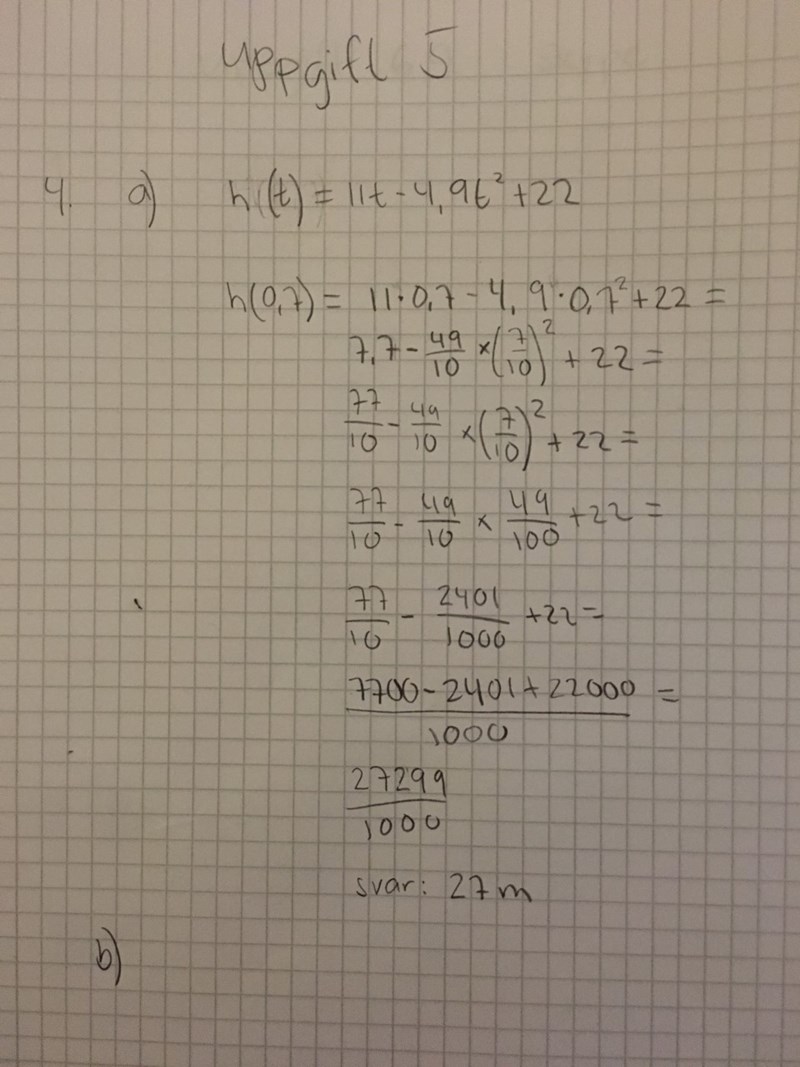 Uppgift 5
4. a) h(t) = 11t - 4,9t² + 22
h(0,7) = 11·0,7 - 4,9·0,7² + 22 =
7,7 - 49/10 × (7/10)² + 22 =
77/10 - 49/10 × (7/10)² + 22 =
77/10 - 49/10 × 49/100 + 22 =
77/10 - 2401/1000 + 22 =
7700 - 2401 + 22000 =
1000
27299
1000
svar: 27 m
b)